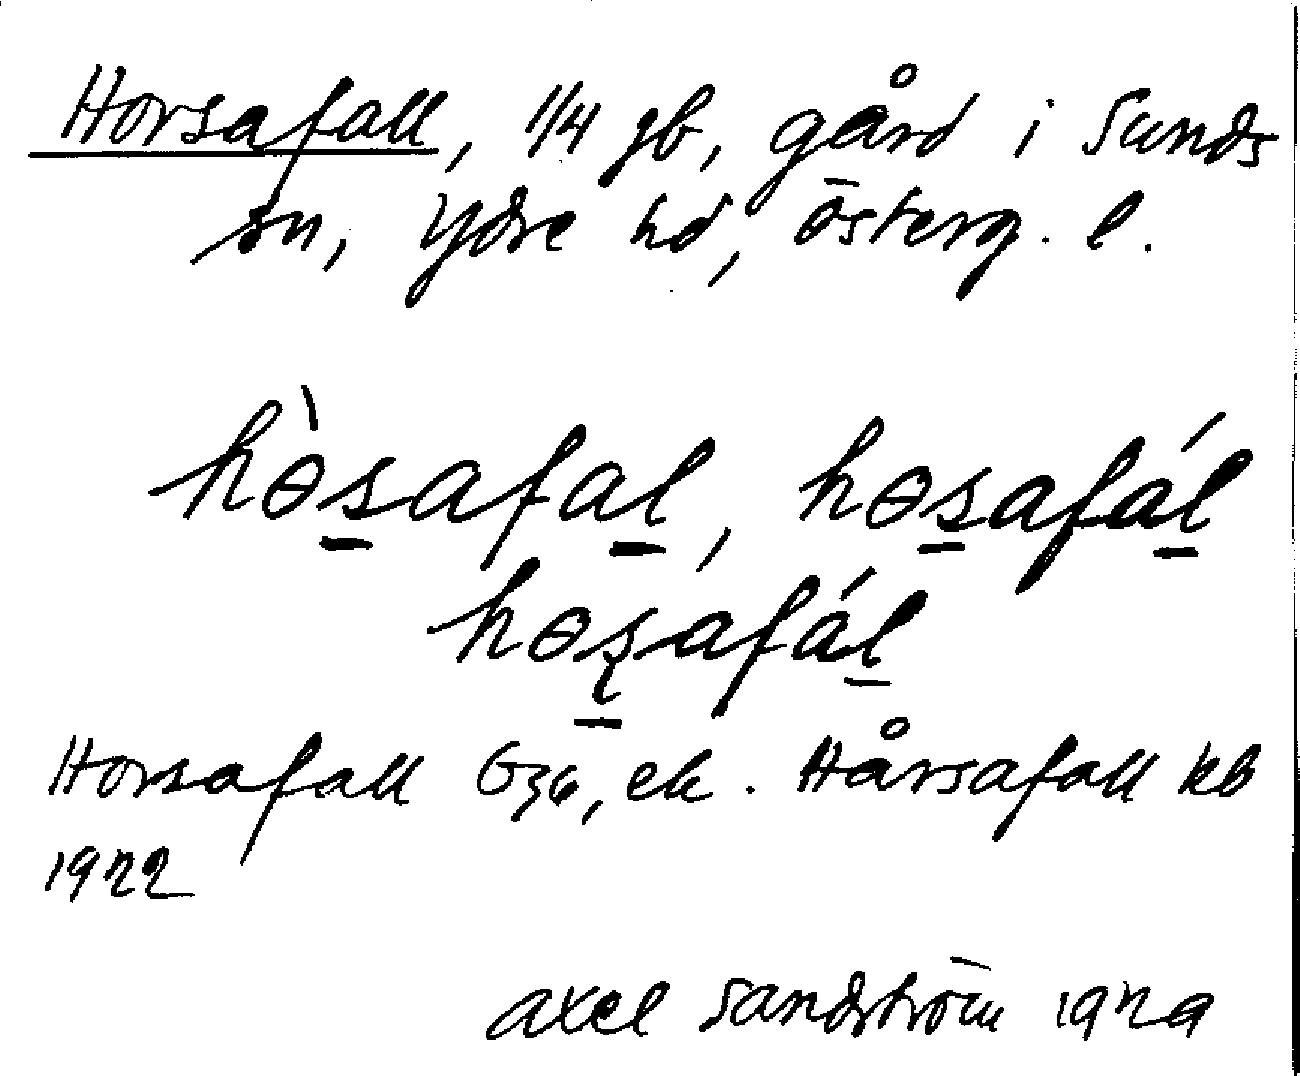 Horsafall, 1/4 gb, gård i Sunds
sn, Ydre hd, Österg. l.
hɵ̀s̠afal̠, hɵs̠afál̠
hɵʂ̠afál̠
Horsafall G36, ek. Hårsafall kb
1922
Axel Sandström 1929